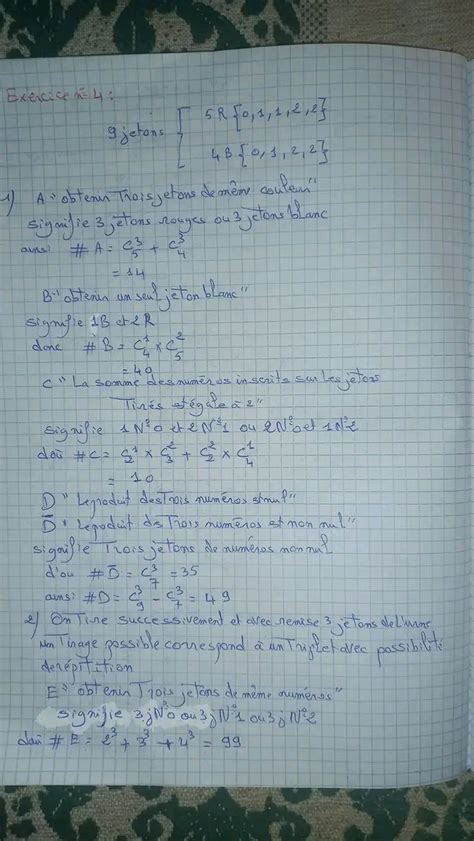 Exercice n° 4 :
9 jetons { 5R {0,1,1,2,2}
4B {0,1,2,2}
1) A "obtenir Trois jetons de même couleur"
signifie 3 jetons rouges ou 3 jetons blanc
ainsi # A = C₅³ + C₄³
= 14
B "obtenir un seul jeton blanc"
signifie 1B et 2R
donc # B = C₄¹ × C₅²
= 40
C "La somme des numéros inscrits sur les jetons
Tirés est égale à 2"
signifie 1N°0 et 2N°1 ou 2N°0 et 1N°2
d'où # C = C₂¹ × C₃² + C₂² × C₄¹
= 10
D "Le produit des Trois numéros est nul"
D̅ "Le produit des Trois numéros est non nul"
signifie Trois jetons de numéros non nul
d'où # D̅ = C₇³ = 35
ainsi # D = C₉³ - C₇³ = 49
2) On Tire successivement et avec remise 3 jetons de l'urne
un Tirage possible correspond à un Triplet avec possibilité
de répétition
E "obtenir Trois jetons de même numéros"
signifie 3jN°0 ou 3jN°1 ou 3jN°2
d'où # E = 2³ + 3³ + 4³ = 99